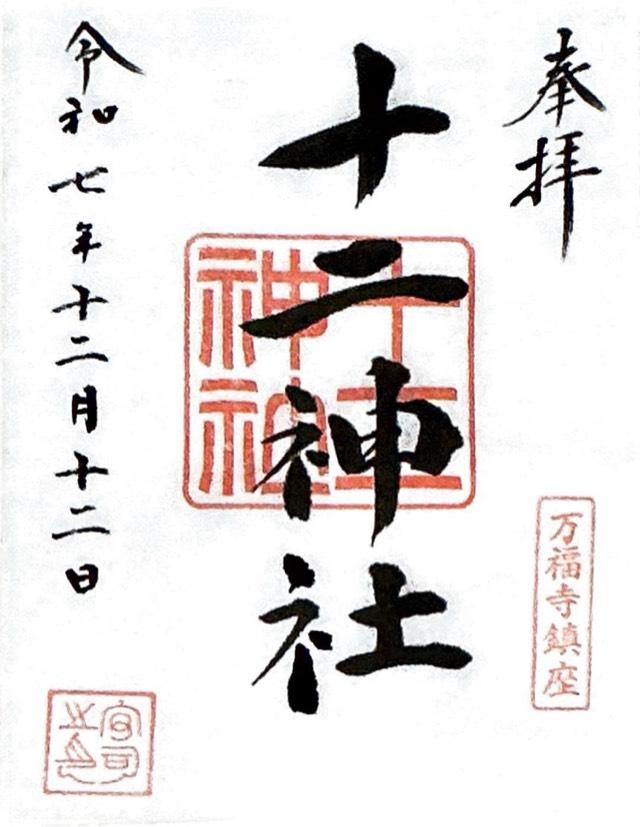 奉拝
万福寺鎮座
十二神社
十二神社
令和七年十二月十二日
宮司之印